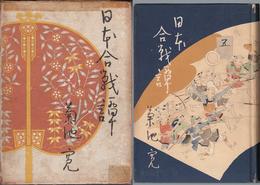 日本合戦譚
菊池寛
日本
合戦譚
菊池寛